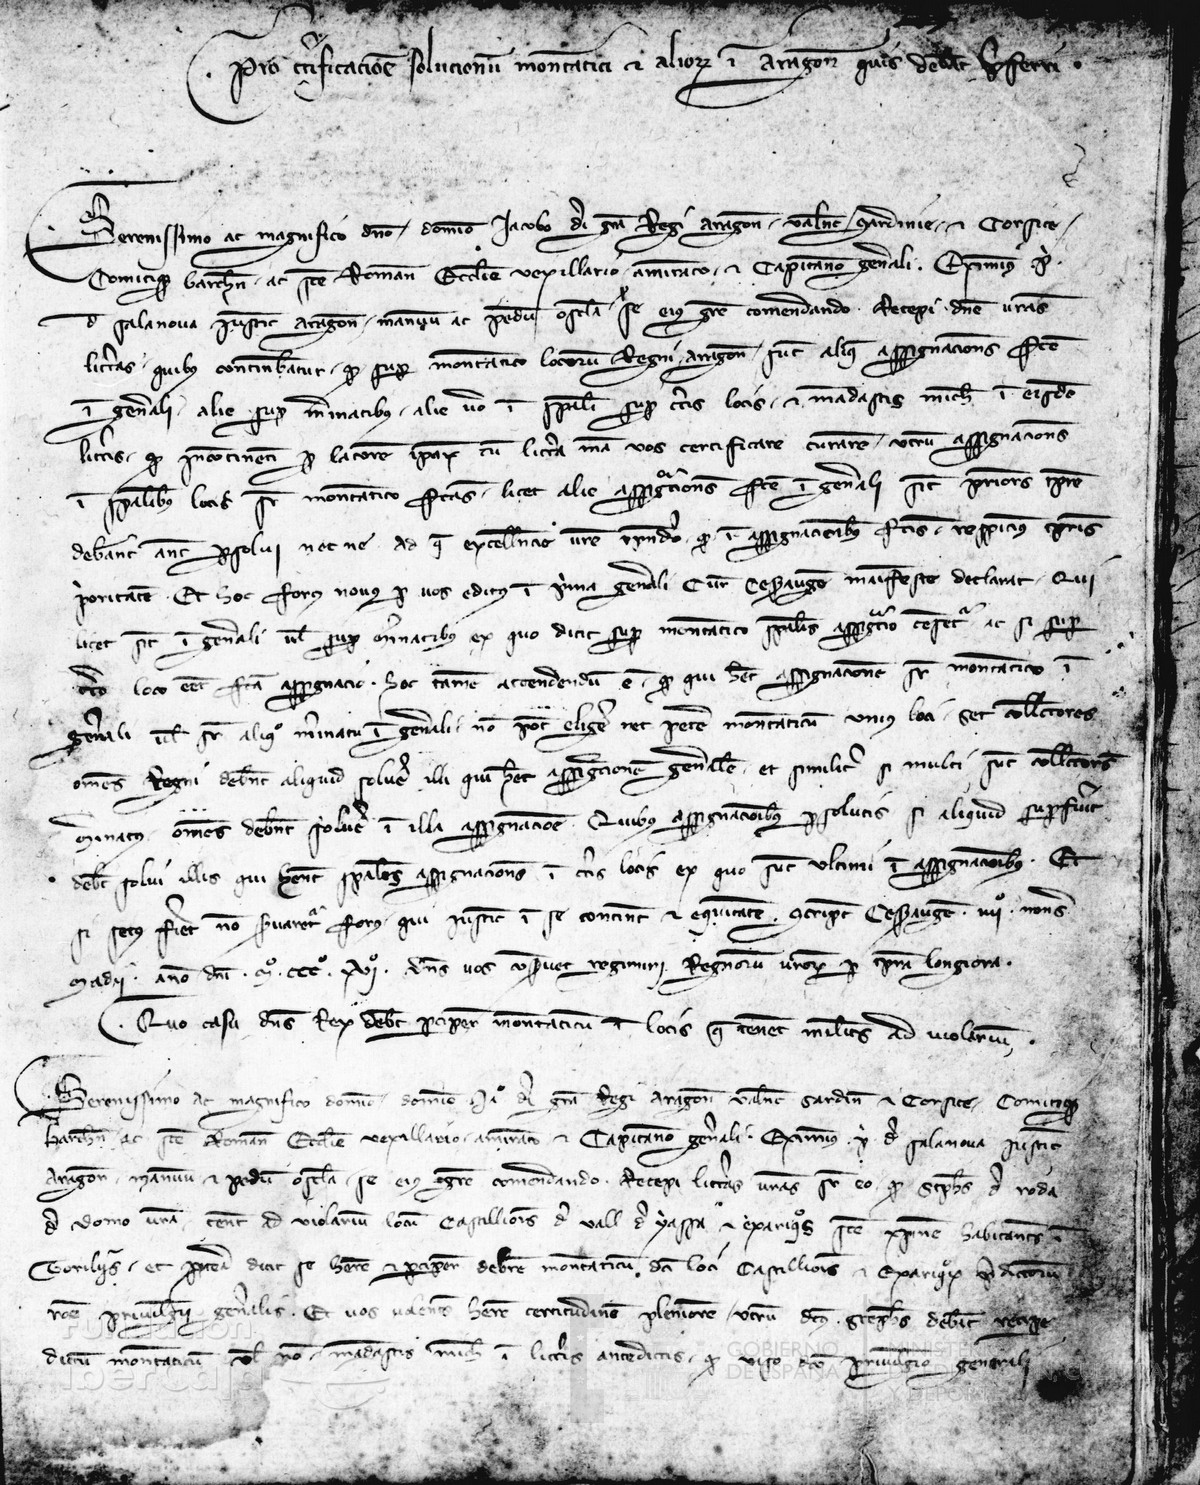 Pro certificatione solucionum montatici et aliorum in Aragon quis debet
Serenissimo ac magnifico dno domino Jacobo dei gra Regi Aragon Valent Sardinie et Corsice
Comitiqz barchn ac sce Roman Ecclie vexillario amirato et Capitaneo generali Eximius p
de salanova Justic Aragon manuum ac pedum oscla se eius gre comendando Recepi dne vras
litteras quibus continebatur qd super montatico locorum Regni Aragon sunt aliq assignacions fce
in generali alie super merinatibus alie vo in spali super certis locis et mandastis mich in eisdem
litteris qd incontinenti p latorem cum littera mea vos certificare curarem utrum assignacions
in spalibus locis sr montatico fcas licet alie assignacions fce in generali sint priores tempore
debeant ante persolvi nec ne ad q excellencie vre respondeo qd in assignacionibus fcis respicimus temporis
prioritatem Et hoc forus novus p vos editus in prima generali Cur Cesarauguste manifeste declarat Qui
licet sit in generali vel super merinatibus ex quo dicit super montatico spalis assignatio censetur ac si super
certo loco esset fca assignacio hoc tamen attendendum est qd qui habet assignacionem sr montatico in
generali vel sr aliquo merinatu in generali non pot eligere nec petere montaticum unius loci set collectores
omnes Regni debent aliquid solvere illi qui habet assignacionem generalem et similiter si multi sunt collectores
merinatus omnes debent solvere in illa assignacione Quibus assignacionibus persolutis si aliquid superfuerit
debet solvi illis qui habent spales assignacions in certis locis ex quo sunt ultimi in assignacionibus Et
si secus fieret non servaretur forus qui iusticiam in se continet et equitatem Script Cesarauguste iiii nons
madii anno dni mo ccco xvio dns vos conservet regimini Regnorum vrorum p tempora longiora
Quo casu dns Rex debet percipere montaticum in locis que tenent milites ad violarium
Serenissimo ac magnifico domno domino Ja dei gra Regi Aragon Valent Sardin et Corsice Comitiqz
barchn ac sce Roman Ecclie vexillario amirato et Capitaneo generali Eximius p de salanova Justic
Aragon manuum et pedum oscla se eius gre comendando Recepi litteras vras sr eo qd Stephs de roda
de domo vra tenet ad violarium locum Castilliones de vall de et exariquos sce habitantes in
Gorliis et propterea dicit se habere et percipere debere montaticum dci loci Castillions et Exariquorum
rone privilegii generalis Et vos volentes habere certitudinem pleniorem utrum dcus Stephs debeat recipere
dictum montaticum vel non mandastis mich in litteris antedictis qd viso dco privilegio generali